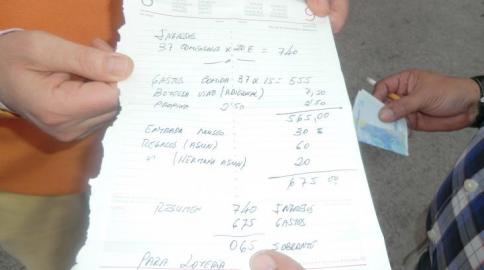 INGRESOS
37 COMENSALES x 20 E = 740
GASTOS COMIDA 37 x 15 = 555
BOTELLA VINO (ADICIONAL) 7,50
PROPINA 2'50 2'50
565,00
ENTRADA MUSEO 30
REGALOS (ASUN) 60
" (HERMANA ASUN) 20
675 00
RESUMEN 740 INGRESOS
675 GASTOS
065 SOBRANTE
PARA LOTERIA